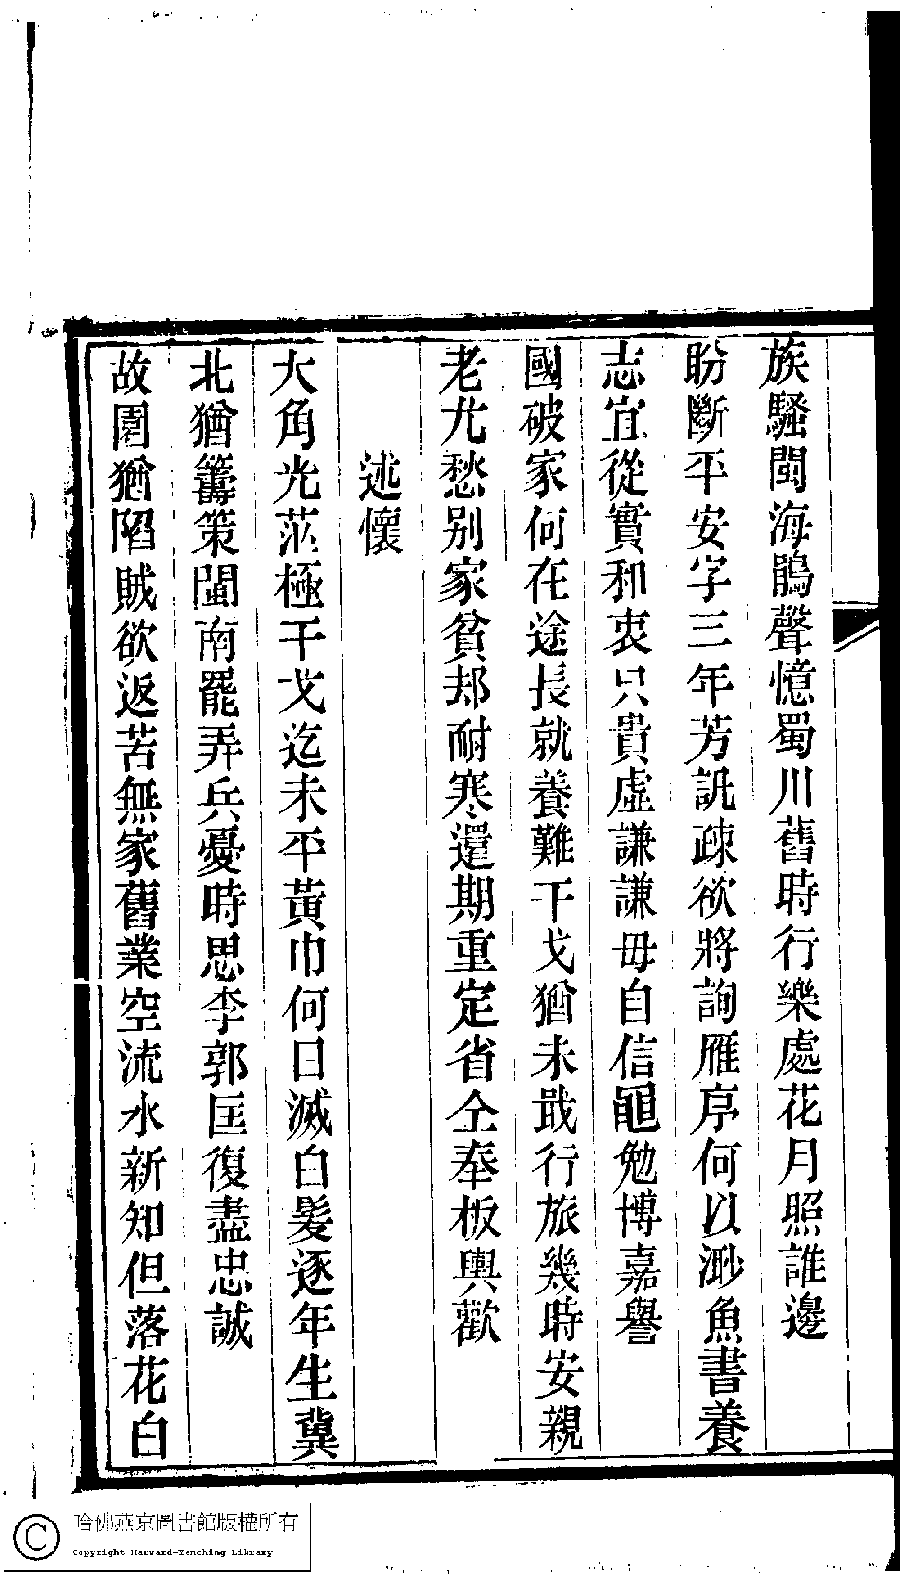 族騷閩海鵑聲憶蜀川舊時行樂處花月照誰邊
盼斷平安字三年芳訊疎欲將詢雁序何以渺魚書養
志宜從實和衷只貴虛謙謙毋自信黽勉博嘉譽
國破家何在途長就養難干戈猶未戢行旅幾時安親
老尤愁别家貧却耐寒還期重定省仝奉板輿歡
述懷
大角光茫極干戈迄未平黃巾何日滅白髮逐年生冀
北猶籌策閩南罷弄兵憂時思李郭匡復盡忠誠
故園猶陷賊欲返苦無家舊業空流水新知但落花白
哈佛燕京圖書館版權所有
Copyright Harvard-Yenching Library